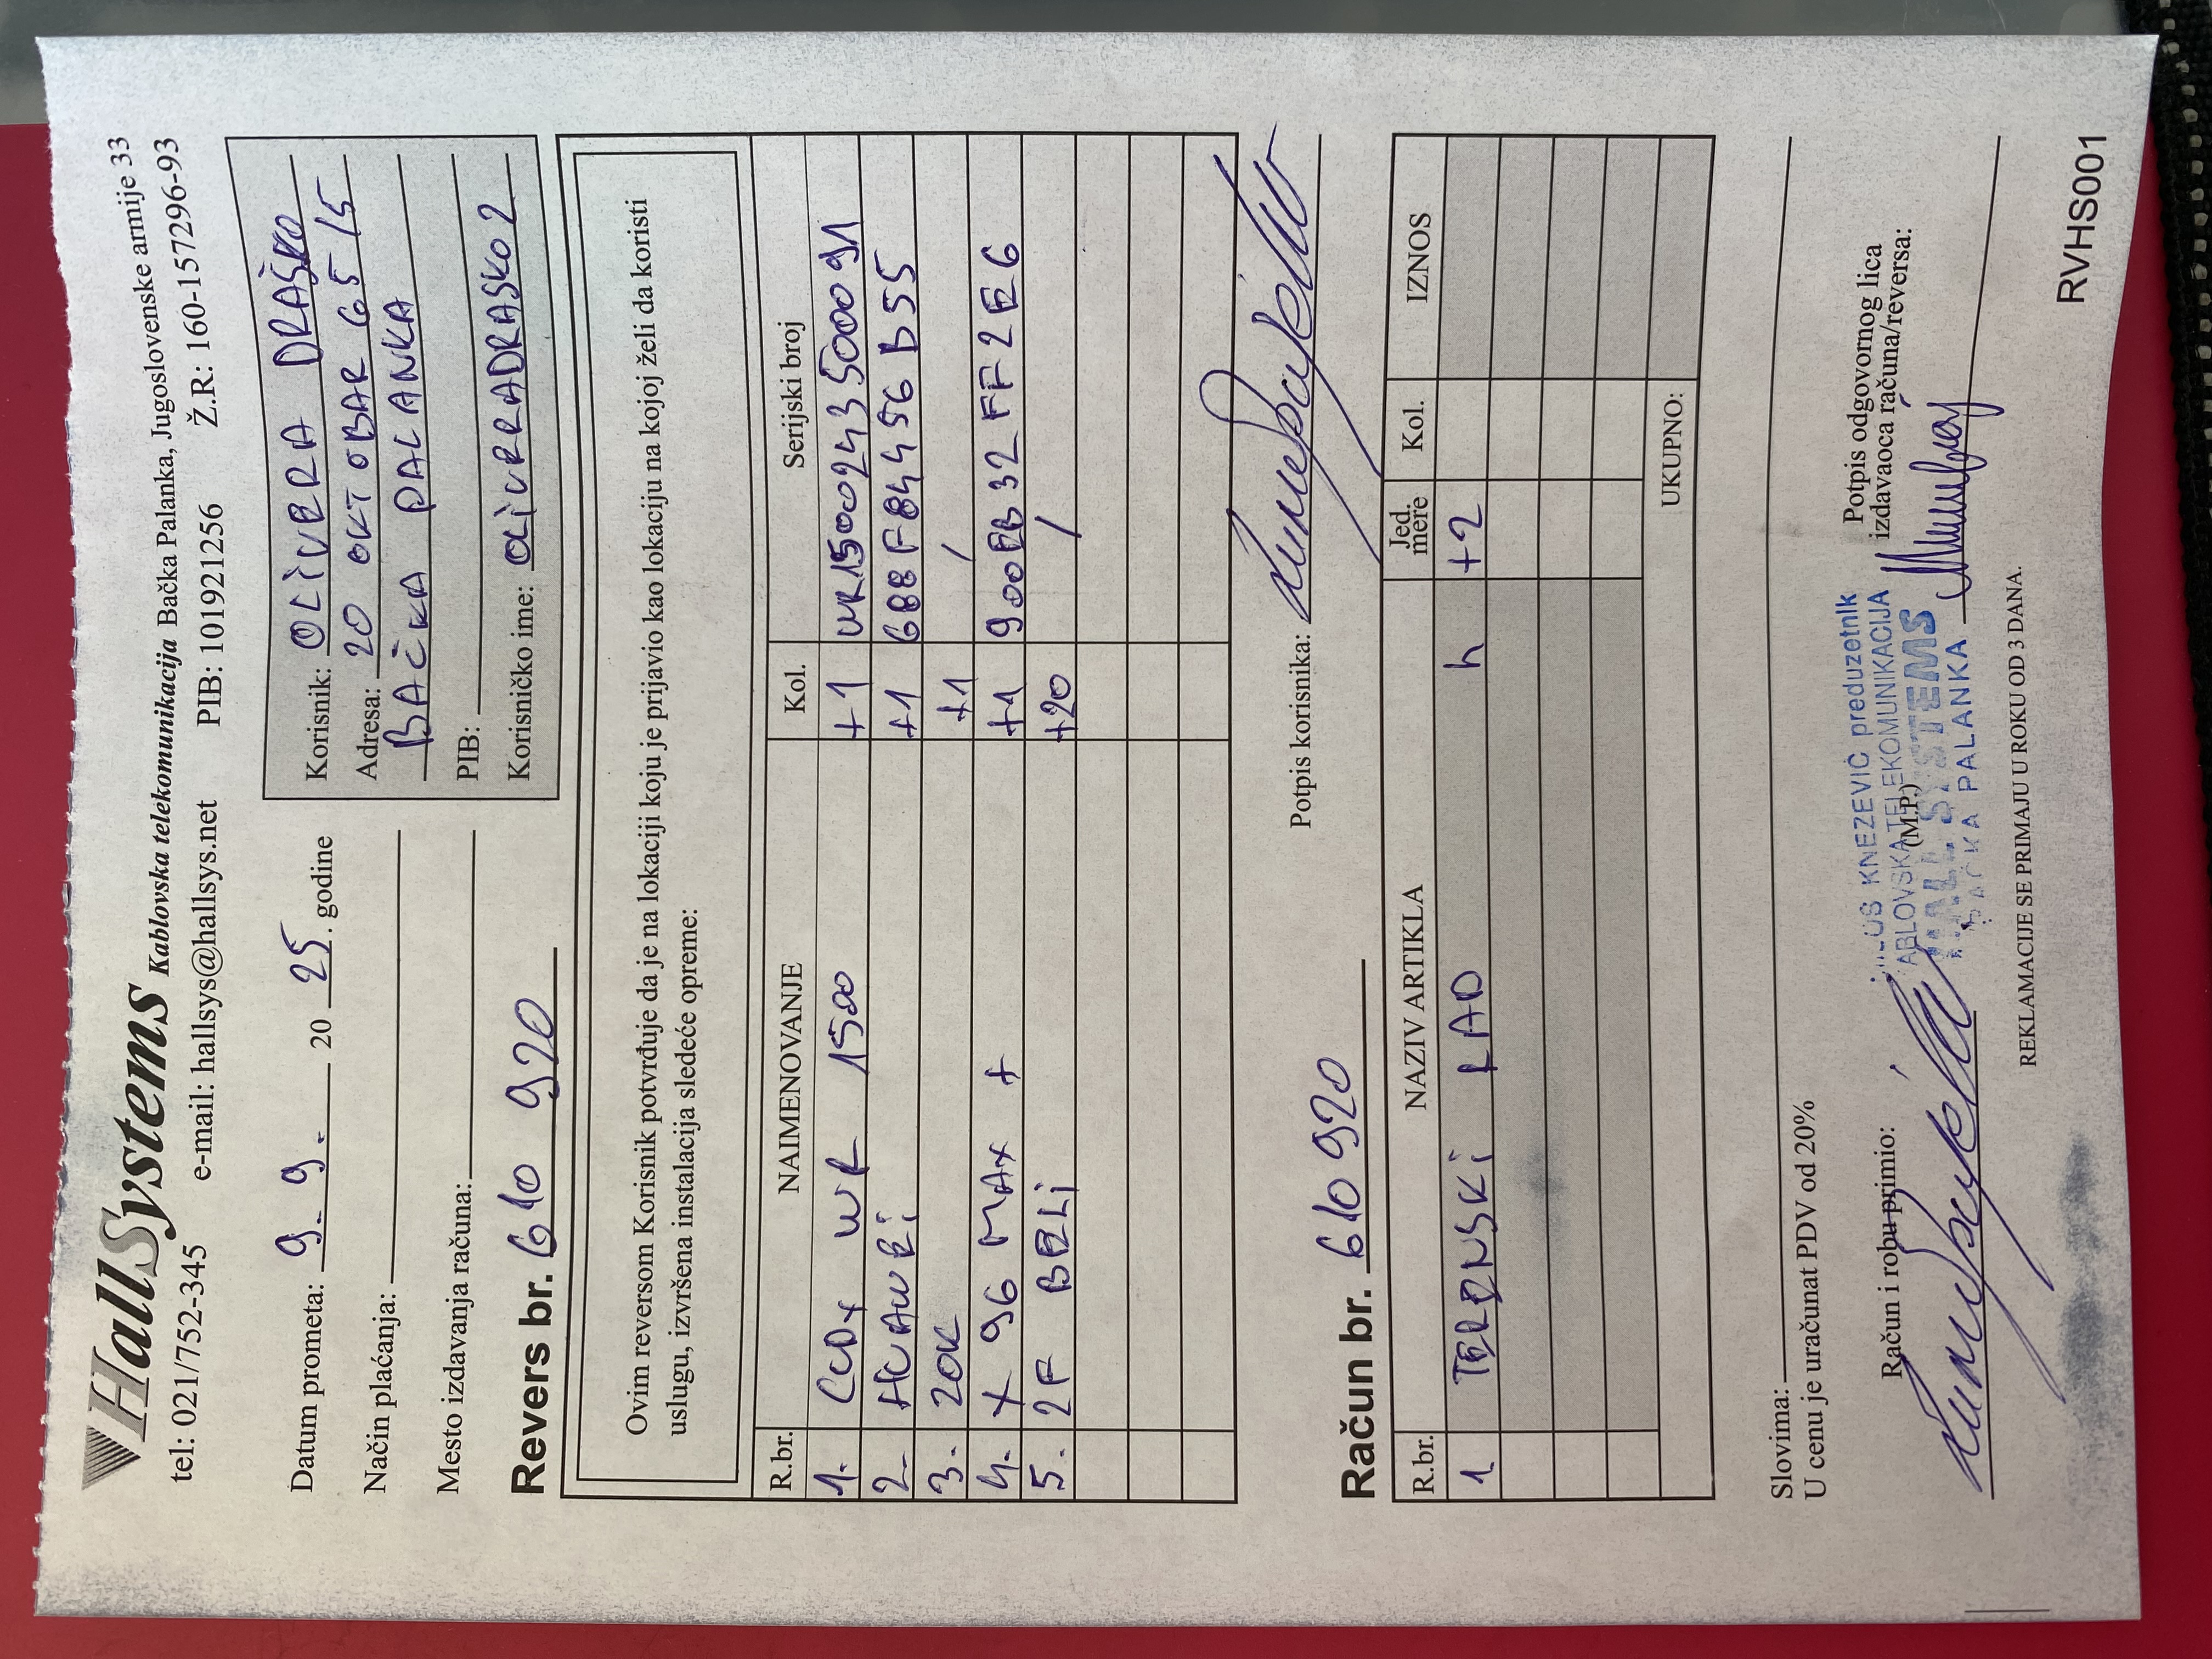 HallSystems Kablovska telekomunikacija Bačka Palanka, Jugoslovenske armije 33
tel: 021/752-345 e-mail: hallsys@hallsys.net PIB: 101921256 Ž.R: 160-157296-93
Datum prometa: 9. 9. 20 25. godine
Način plaćanja:
Mesto izdavanja računa:
Korisnik: OLIVERA DRAŠKO
Adresa: 20 OKTOBAR 65/5
BAČKA PALANKA
PIB:
Korisničko ime: OLIVERADRASKO2
Revers br. 610 920
Ovim reversom Korisnik potvrđuje da je na lokaciji koju je prijavio kao lokaciju na kojoj želi da koristi
uslugu, izvršena instalacija sledeće opreme:
R.br. NAIMENOVANJE Kol. Serijski broj
1. CUDY WR 1500 +1 WR1500243500091
2. +1 688F84456B55
3. 20K +1 /
4. X96 MAX + +1 900EB32FF2E6
5. 2F BELI +20 /
Potpis korisnika:
Račun br. 610920
R.br. NAZIV ARTIKLA Jed. mere Kol. IZNOS
1 TERENSKI RAD h +2
UKUPNO:
Slovima:
U cenu je uračunat PDV od 20%
Račun i robu primio:
(M.P.)
Potpis odgovornog lica
izdavaoca računa/reversa:
KNEZEVIĆ preduzetnik
KABLOVSKA TELEKOMUNIKACIJA
HALL SYSTEMS
BAČKA PALANKA
REKLAMACIJE SE PRIMAJU U ROKU OD 3 DANA.
RVHS001